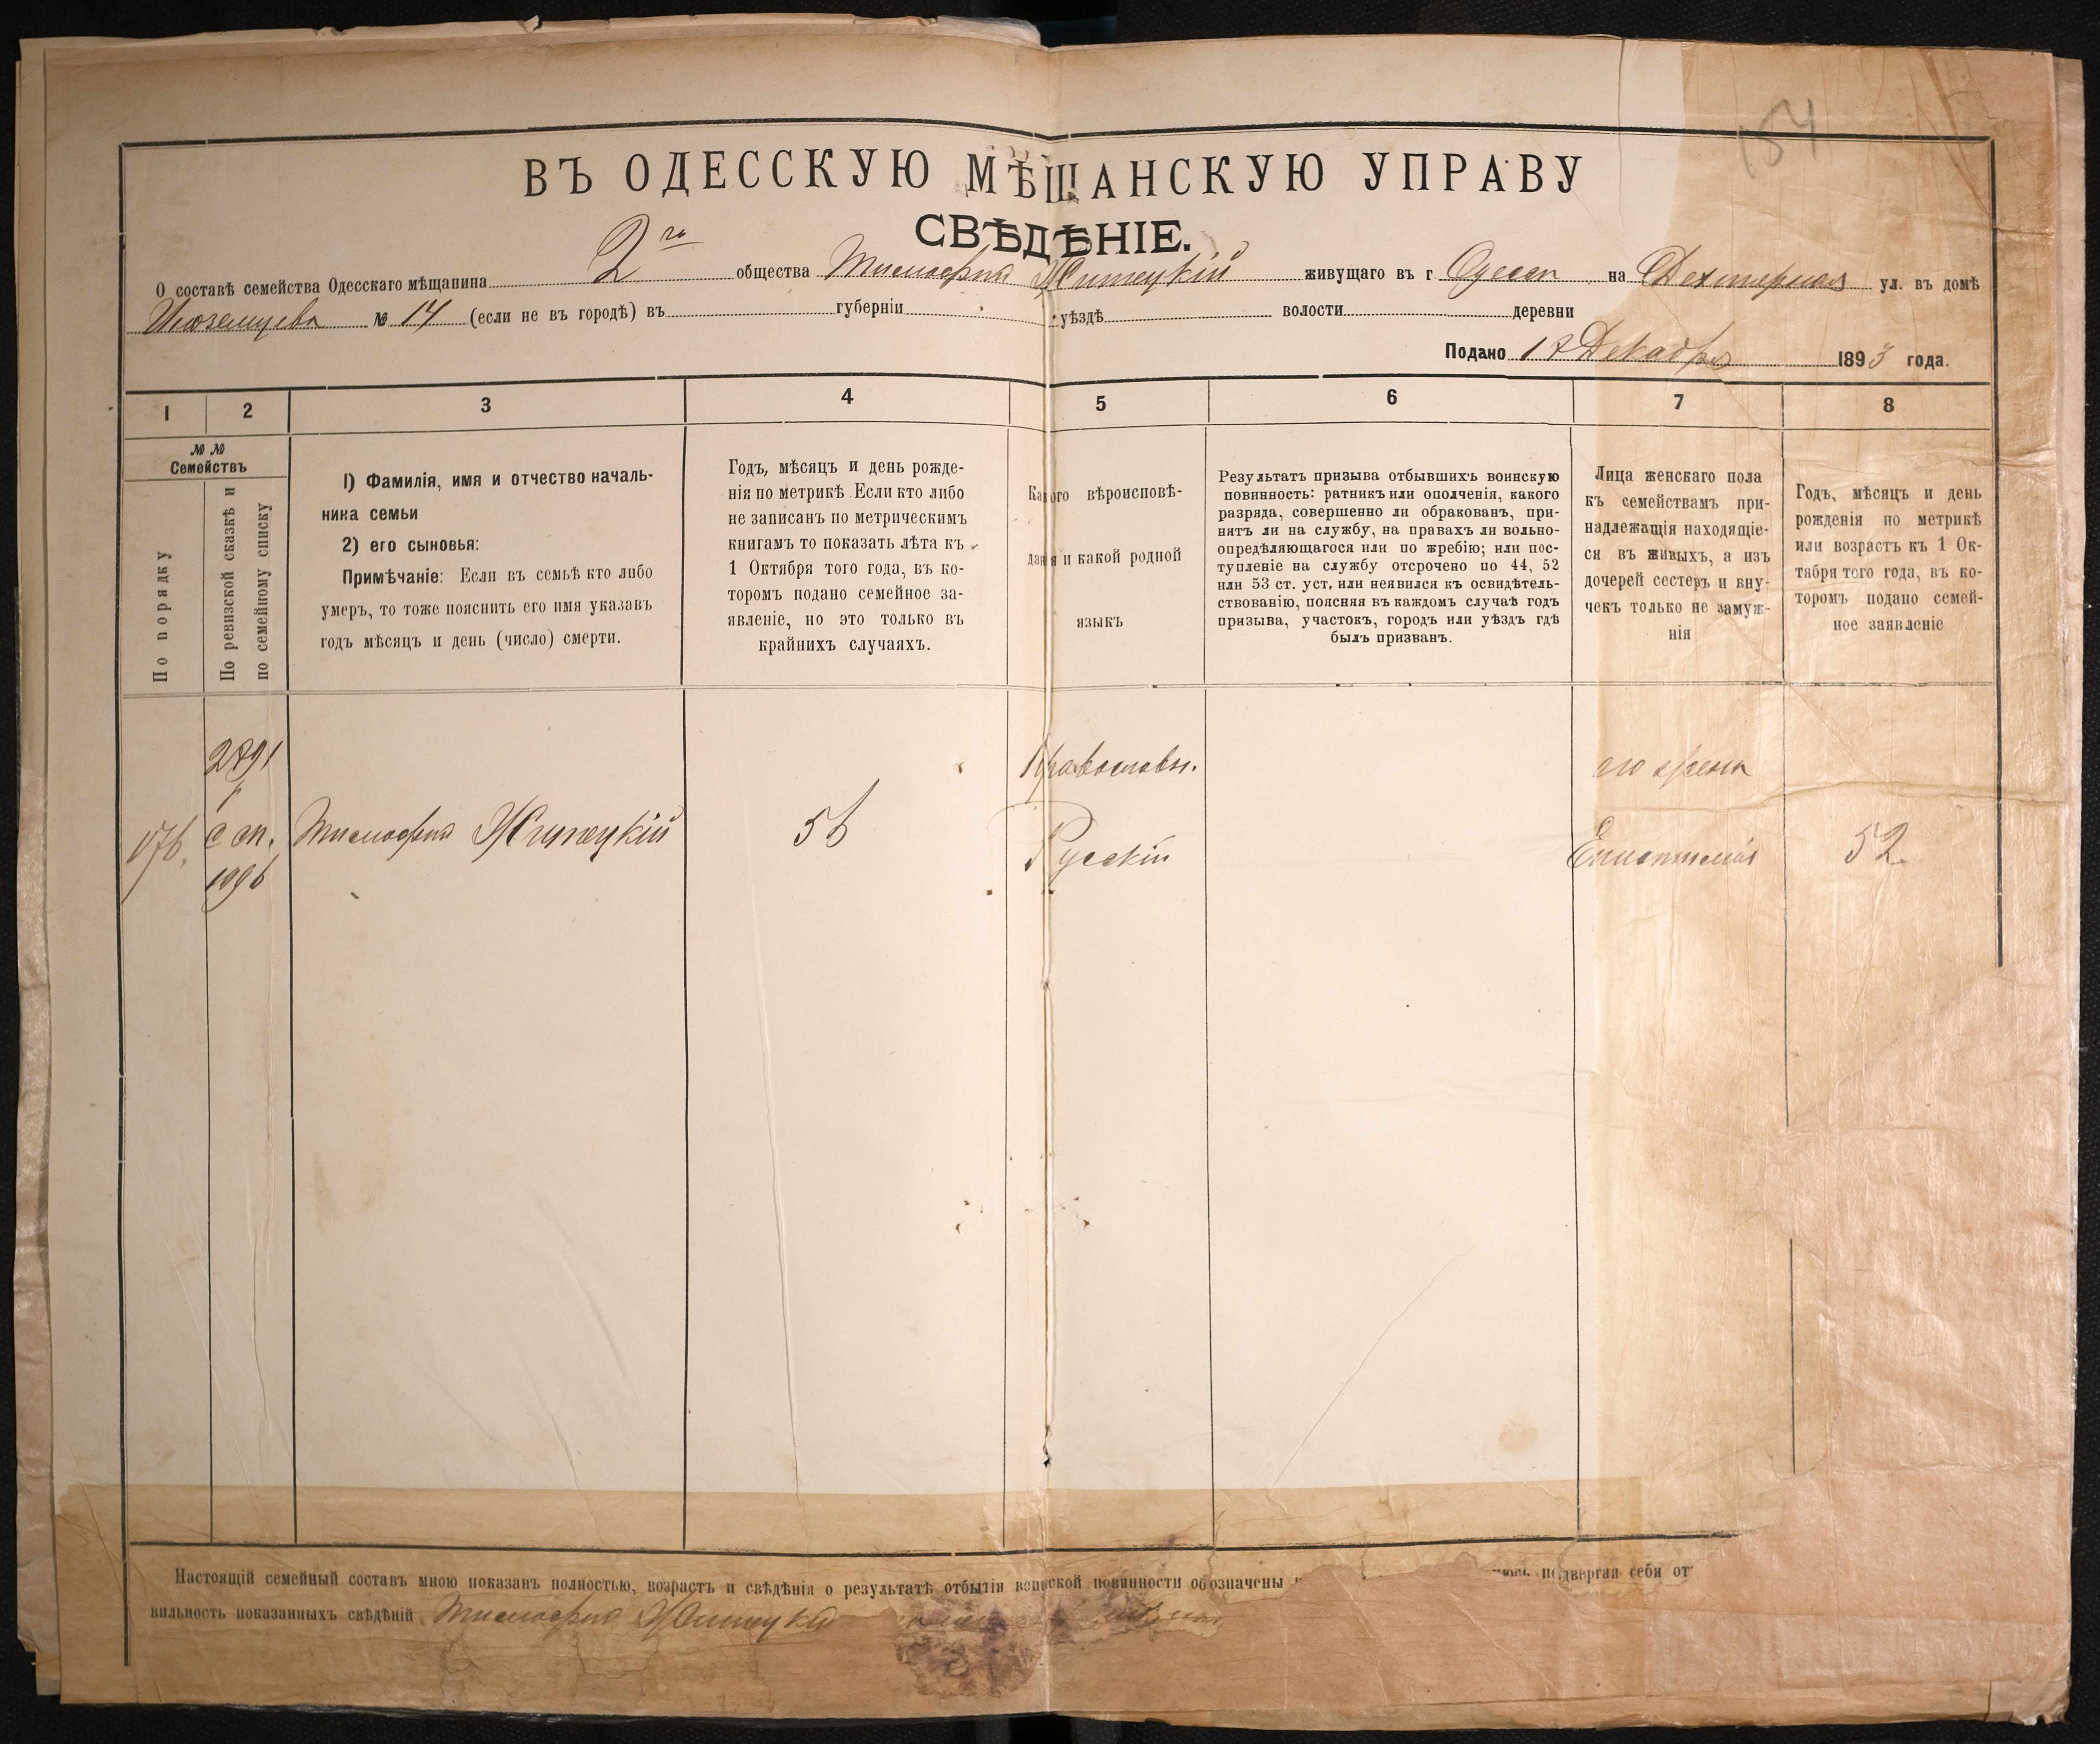 154
ВЪ ОДЕССКУЮ МѢЩАНСКУЮ УПРАВУ
СВѢДѢНІЕ.
О составѣ семейства Одесскаго мѣщанина 2го общества Тимофей Житецкій живущаго въ г Одессѣ на Дегтярная ул. въ домѣ
Иноземцева № 14 (если не въ городѣ) въ губерніи уѣздѣ волости деревни
Подано Декабря 1893 года.
1 2 3 4 5 6 7 8
№ №
Семействъ
По порядку
По ревизской сказкѣ и
по семейному списку
1) Фамилія, имя и отчество началь-
ника семьи
2) его сыновья:
Примѣчаніе: Если въ семьѣ кто либо
умеръ, то тоже пояснить его имя указавъ
годъ мѣсяцъ и день (число) смерти.
Годъ, мѣсяцъ и день рожде-
нія по метрикѣ. Если кто либо
не записанъ по метрическимъ
книгамъ то показать лѣта къ
1 Октября того года, въ ко-
торомъ подано семейное за-
явленіе, но это только въ
крайнихъ случаяхъ.
Какого вѣроисповѣ-
данія и какой родной
языкъ
Результатъ призыва отбывшихъ воинскую
повинность: ратникъ или ополченія, какого
разряда, совершенно ли обракованъ, при-
нятъ ли на службу, на правахъ ли вольно-
опредѣляющагося или по жребію; или пос-
тупленіе на службу отсрочено по 44, 52
или 53 ст. уст, или неявился къ освидѣтель-
ствованію, поясняя въ каждомъ случаѣ годъ
призыва, участокъ, городъ или уѣздъ гдѣ
былъ призванъ.
Лица женскаго пола
къ семействамъ при-
надлежащія находящіе-
ся въ живыхъ, а изъ
дочерей сестеръ и вну-
чекъ только не замуж-
нія
Годъ, мѣсяцъ и день
рожденія по метрикѣ
или возрастъ къ 1 Ок-
тября того года, въ ко-
торомъ подано семей-
ное заявленіе
2891
Православн.
его жена
176. с сп. Тимофей Житецкій 56 Русскій Епистимія 52
1096
Настоящій семейный составъ мною показанъ полностью, возрастъ и свѣдѣнія о результатѣ отбытія воинской повинности обозначены подвергая себя от
вильность показанныхъ свѣдѣній Тимофей Житецкій